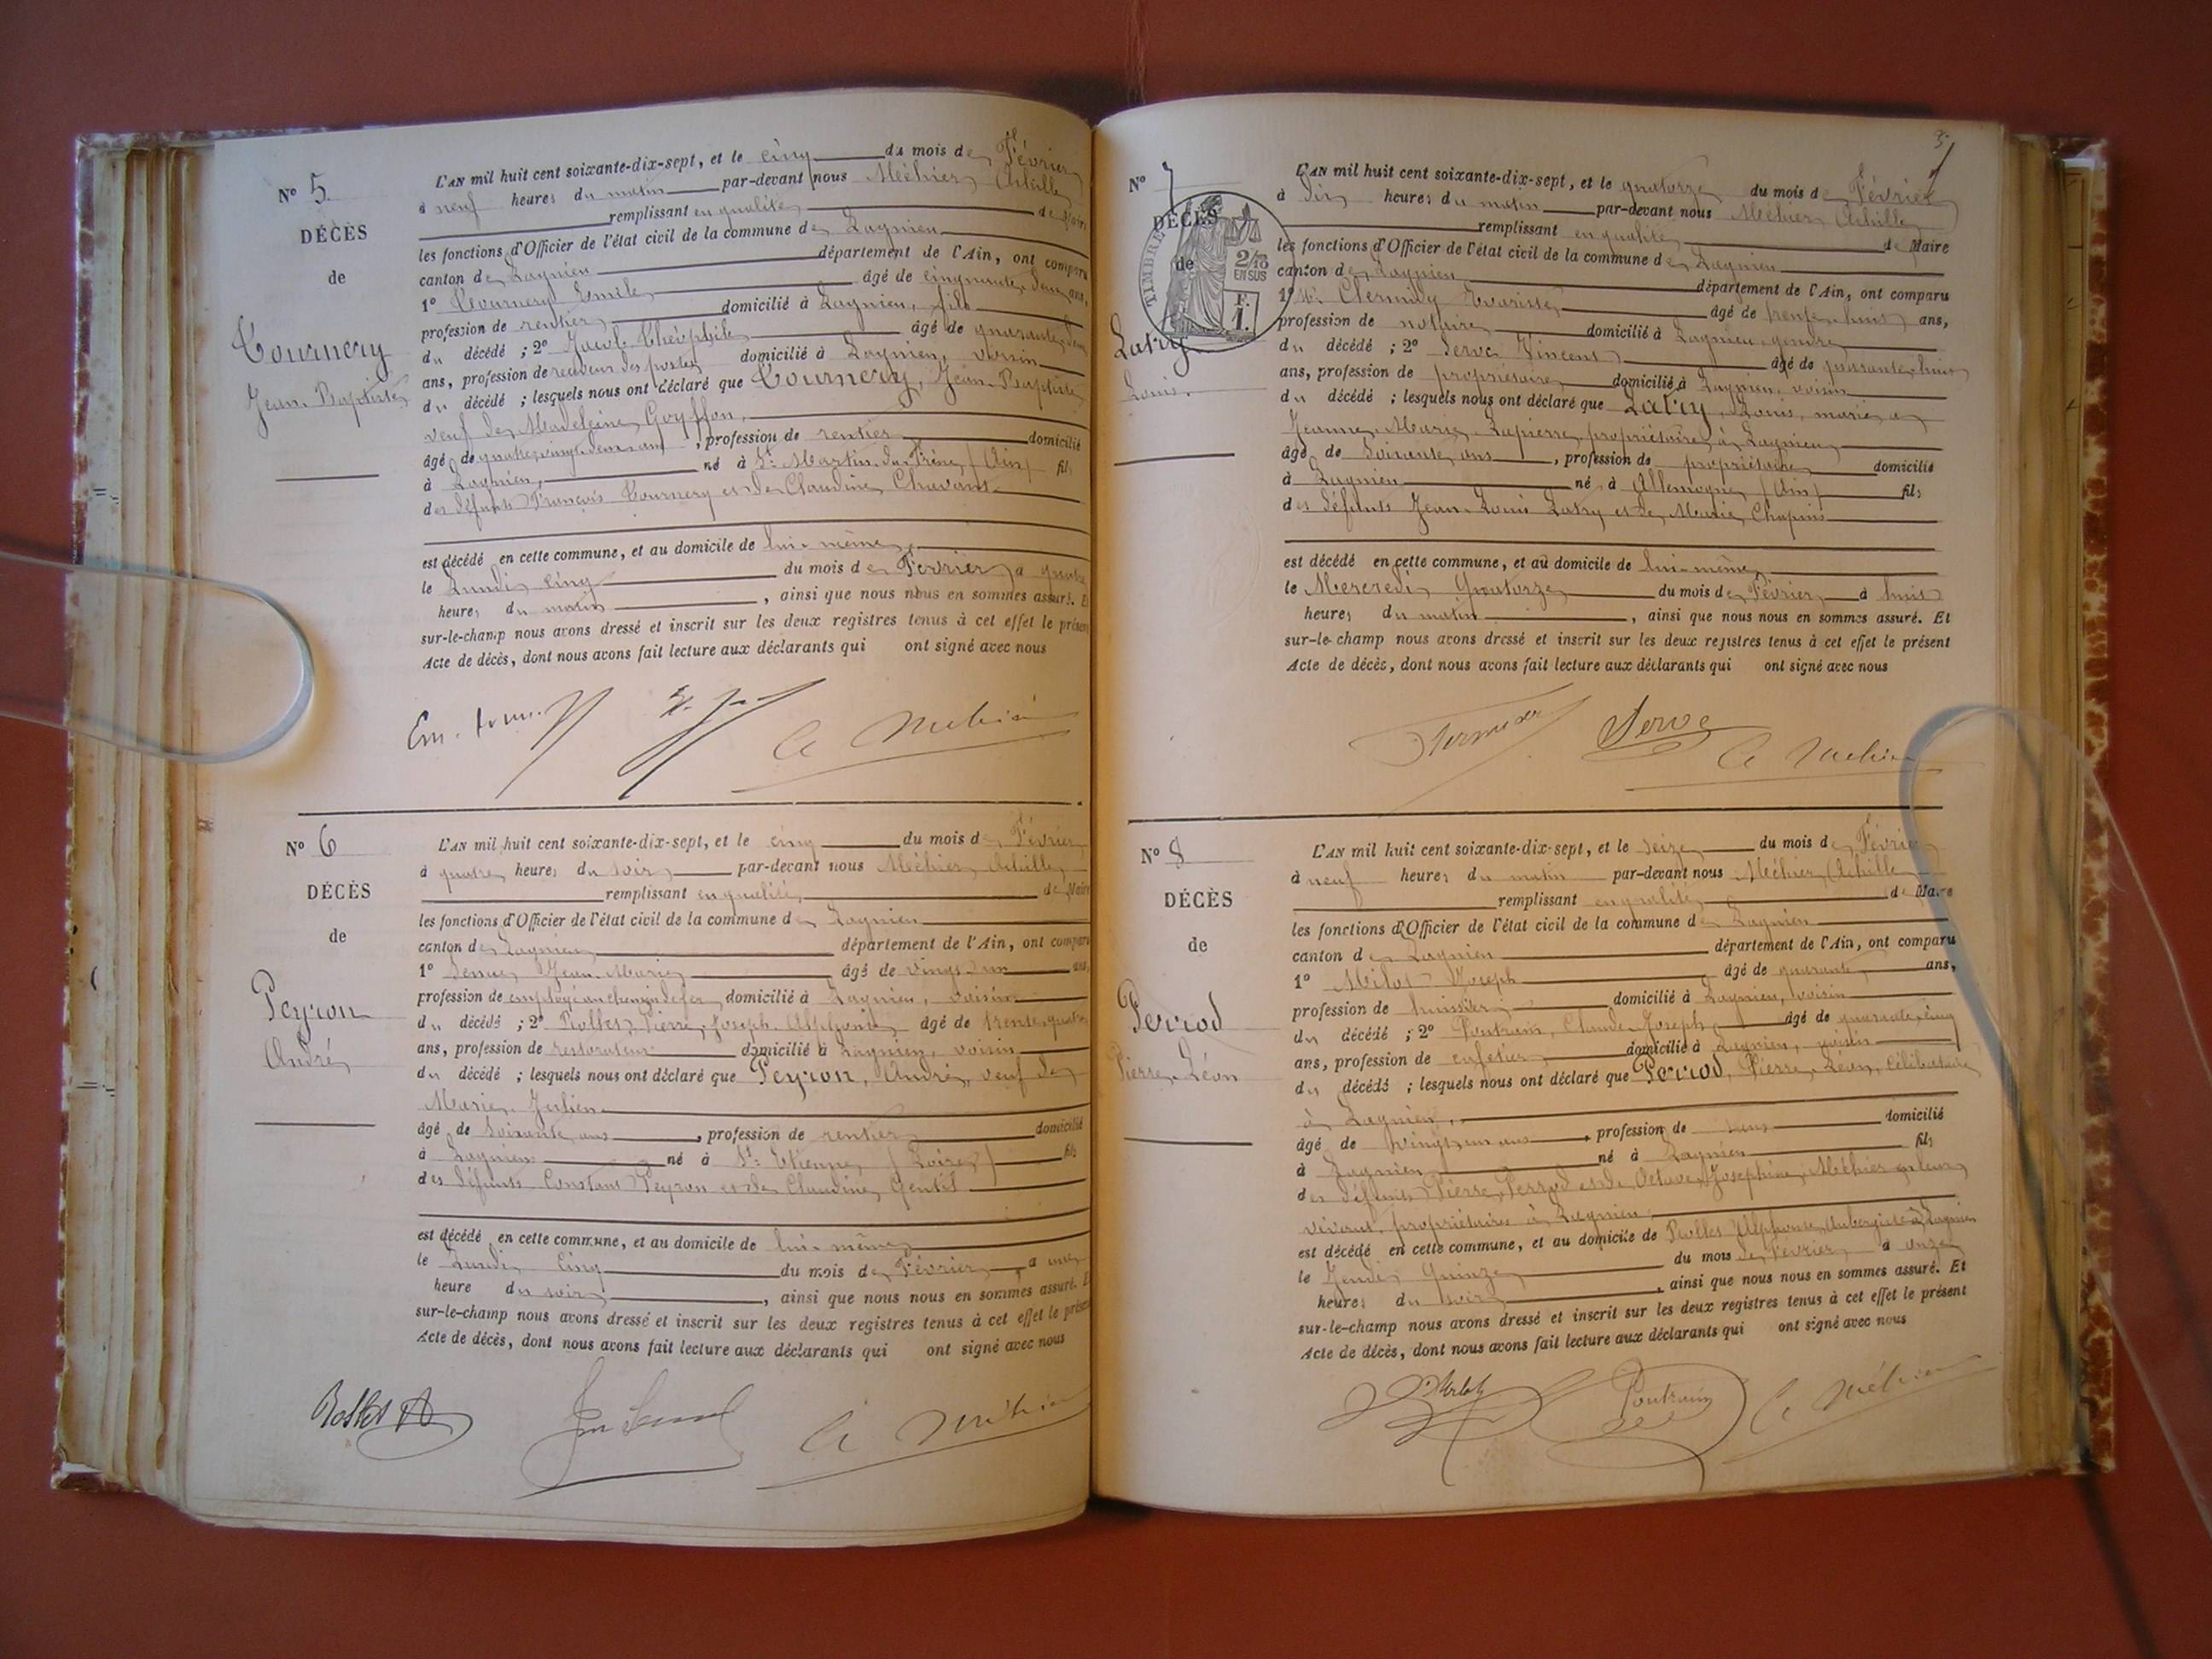 N° 5
DÉCÈS
de
Tournery
Jean-Baptiste
L'AN mil huit cent soixante-dix-sept, et le cinq du mois de Février
à neuf heures du matin par-devant nous Méhier Achille
remplissant en qualité de Maire
les fonctions d'Officier de l'état civil de la commune de Lagnieu
canton de Lagnieu département de l'Ain, ont comparu
1° Tournery Emile âgé de cinquante-deux ans,
profession de rentier domicilié à Lagnieu, fils
du décédé ; 2° Jacob Théophile âgé de quarante-deux
ans, profession de receveur des postes domicilié à Lagnieu, voisin
du décédé ; lesquels nous ont déclaré que Tournery, Jean-Baptiste
veuf de Madeleine Goyffon,
âgé de quatre-vingt-deux ans, profession de rentier domicilié
à Lagnieu, né à St Martin-du-Frêne (Ain) fils
des défunts François Tournery et de Claudine Chavant
est décédé en cette commune, et au domicile de lui-même,
le Lundi cinq du mois de Février à quatre
heures du matin, ainsi que nous nous en sommes assuré. Et
sur-le-champ nous avons dressé et inscrit sur les deux registres tenus à cet effet le présent
Acte de décès, dont nous avons fait lecture aux déclarants qui ont signé avec nous
A Méhier
N° 6
DÉCÈS
de
Peyron
André
L'AN mil huit cent soixante-dix-sept, et le cinq du mois de Février
à quatre heures du soir par-devant nous Méhier Achille
remplissant en qualité de Maire
les fonctions d'Officier de l'état civil de la commune de Lagnieu
canton de Lagnieu département de l'Ain, ont comparu
1° Jean-Marie âgé de vingt-un ans,
profession de employé au chemin de fer domicilié à Lagnieu, voisin
du décédé ; 2° Rollet Pierre Joseph Alphonse âgé de trente-quatre
ans, profession de restaurateur domicilié à Lagnieu, voisin
du décédé ; lesquels nous ont déclaré que Peyron, André, veuf de
Marie Jullien
âgé de soixante ans, profession de rentier domicilié
à Lagnieu né à St Etienne (Loire) fils
des défunts Constant Peyron et de Claudine Gentil
est décédé en cette commune, et au domicile de lui-même
le Lundi Cinq du mois de Février à une
heure du soir, ainsi que nous nous en sommes assuré. Et
sur-le-champ nous avons dressé et inscrit sur les deux registres tenus à cet effet le présent
Acte de décès, dont nous avons fait lecture aux déclarants qui ont signé avec nous
Rollet A
A Méhier
3
N° 7
DÉCÈS
de
TIMBRE
2/10
EN SUS
F.
1.
Latry
Louis
L'AN mil huit cent soixante-dix-sept, et le quatorze du mois de Février
à dix heures du matin par-devant nous Méhier Achille
remplissant en qualité de Maire
les fonctions d'Officier de l'état civil de la commune de Lagnieu
canton de Lagnieu département de l'Ain, ont comparu
1° Mr. Chermidy Evariste âgé de trente-huit ans,
profession de notaire domicilié à Lagnieu gendre
du décédé ; 2° Serve Vincent âgé de quarante-huit
ans, profession de propriétaire domicilié à Lagnieu, voisin
du décédé ; lesquels nous ont déclaré que Latry, Louis, marié à
Jeanne-Marie Lapierre, propriétaire à Lagnieu
âgé de soixante ans, profession de propriétaire domicilié
à Lagnieu né à Allemogne (Ain) fils
des défunts Jean-Louis Latry et de Marie Chapuis
est décédé en cette commune, et au domicile de lui-même
le Mercredi Quatorze du mois de Février à huit
heures du matin, ainsi que nous nous en sommes assuré. Et
sur-le-champ nous avons dressé et inscrit sur les deux registres tenus à cet effet le présent
Acte de décès, dont nous avons fait lecture aux déclarants qui ont signé avec nous
Serve
A Méhier
N° 8
DÉCÈS
de
Perrod
Pierre-Léon
L'AN mil huit cent soixante-dix-sept, et le seize du mois de Février
à neuf heures du matin par-devant nous Méhier Achille
remplissant en qualité de Maire
les fonctions d'Officier de l'état civil de la commune de Lagnieu
canton de Lagnieu département de l'Ain, ont comparu
1° Joseph âgé de quarante ans,
profession de huissier domicilié à Lagnieu, voisin
du décédé ; 2° Poutrain, Claude-Joseph âgé de quarante-cinq
ans, profession de cafetier domicilié à Lagnieu, voisin
du décédé ; lesquels nous ont déclaré que Perrod, Pierre-Léon, célibataire
à Lagnieu,
âgé de vingt-un ans, profession de sans domicilié
à Lagnieu né à Lagnieu fils
des défunts Pierre Perrod et de Octavie Joséphine Méhier
vivant propriétaires à Lagnieu
est décédé en cette commune, et au domicile de Rollet Alphonse, Aubergiste à Lagnieu
le Jeudi Quinze du mois de Février à onze
heures du soir, ainsi que nous nous en sommes assuré. Et
sur-le-champ nous avons dressé et inscrit sur les deux registres tenus à cet effet le présent
Acte de décès, dont nous avons fait lecture aux déclarants qui ont signé avec nous
Poutrain
A Méhier